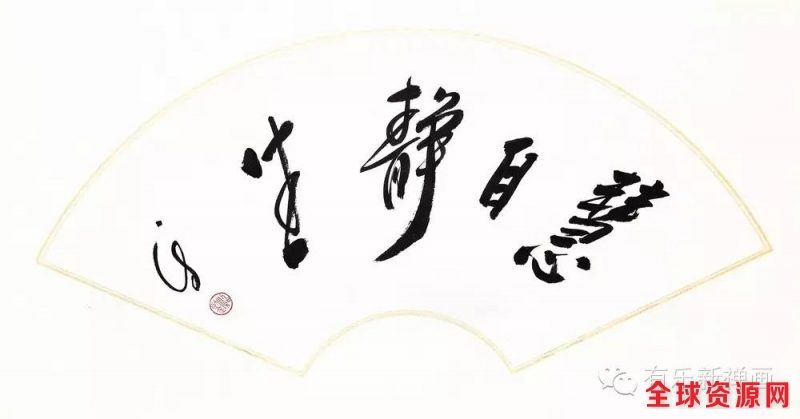 慧自靜生
有乐新禅画
全球资源网